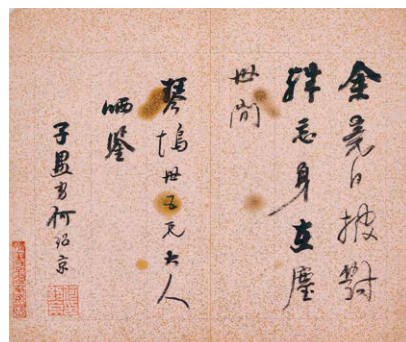 余竟日披對
殊忘身在塵
世間
琴塢世五兄大人
哂鑒
子愚弟何紹京